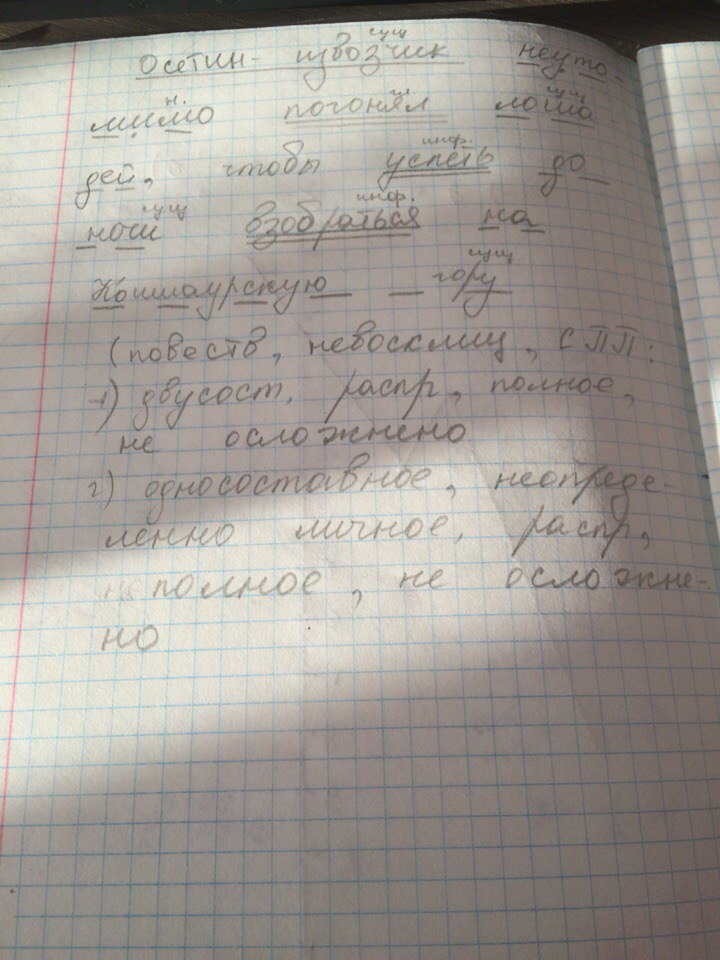 сущ
Осетин- извозчик неуто-
н. гл. сущ
мимо погонял лоша
инф.
дей, чтобы успеть до
сущ инф.
ноши взобраться на
сущ
Койшаурскую гору
(повеств, невосклиц, СПП:
1) двусост, распр, полное,
не осложнено
2) односоставное, неопреде-
ленно личное, распр,
полное, не осложне-
но